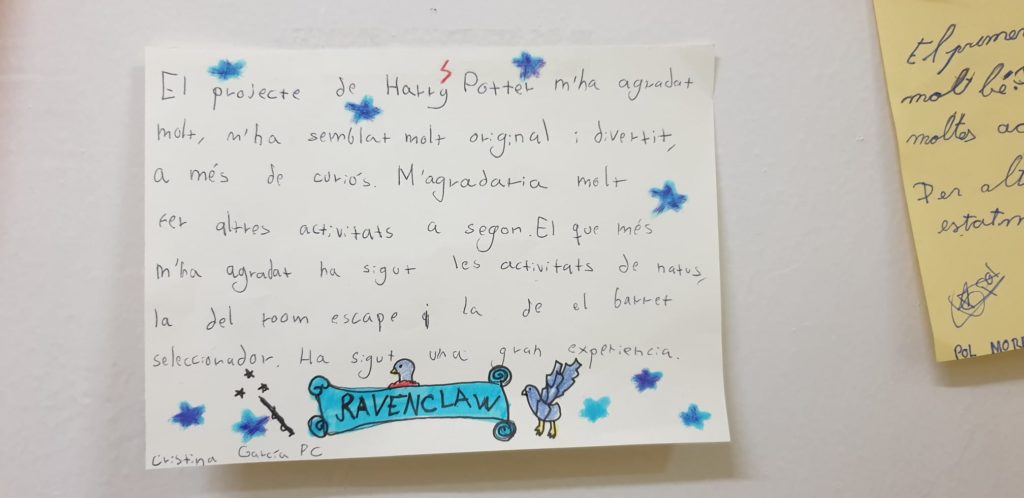 El projecte de Harry Potter m'ha agradat
molt, m'ha semblat molt original i divertit,
a més de curiós. M'agradaria molt
fer altres activitats a segon. El que més
m'ha agradat ha sigut les activitats de natus,
la del room escape i la de el barret
seleccionador. Ha sigut una gran experiencia.
RAVENCLAW
Cristina García PC
El primer
molt bé.
moltes ac
Per alt
estatm
POL MORE